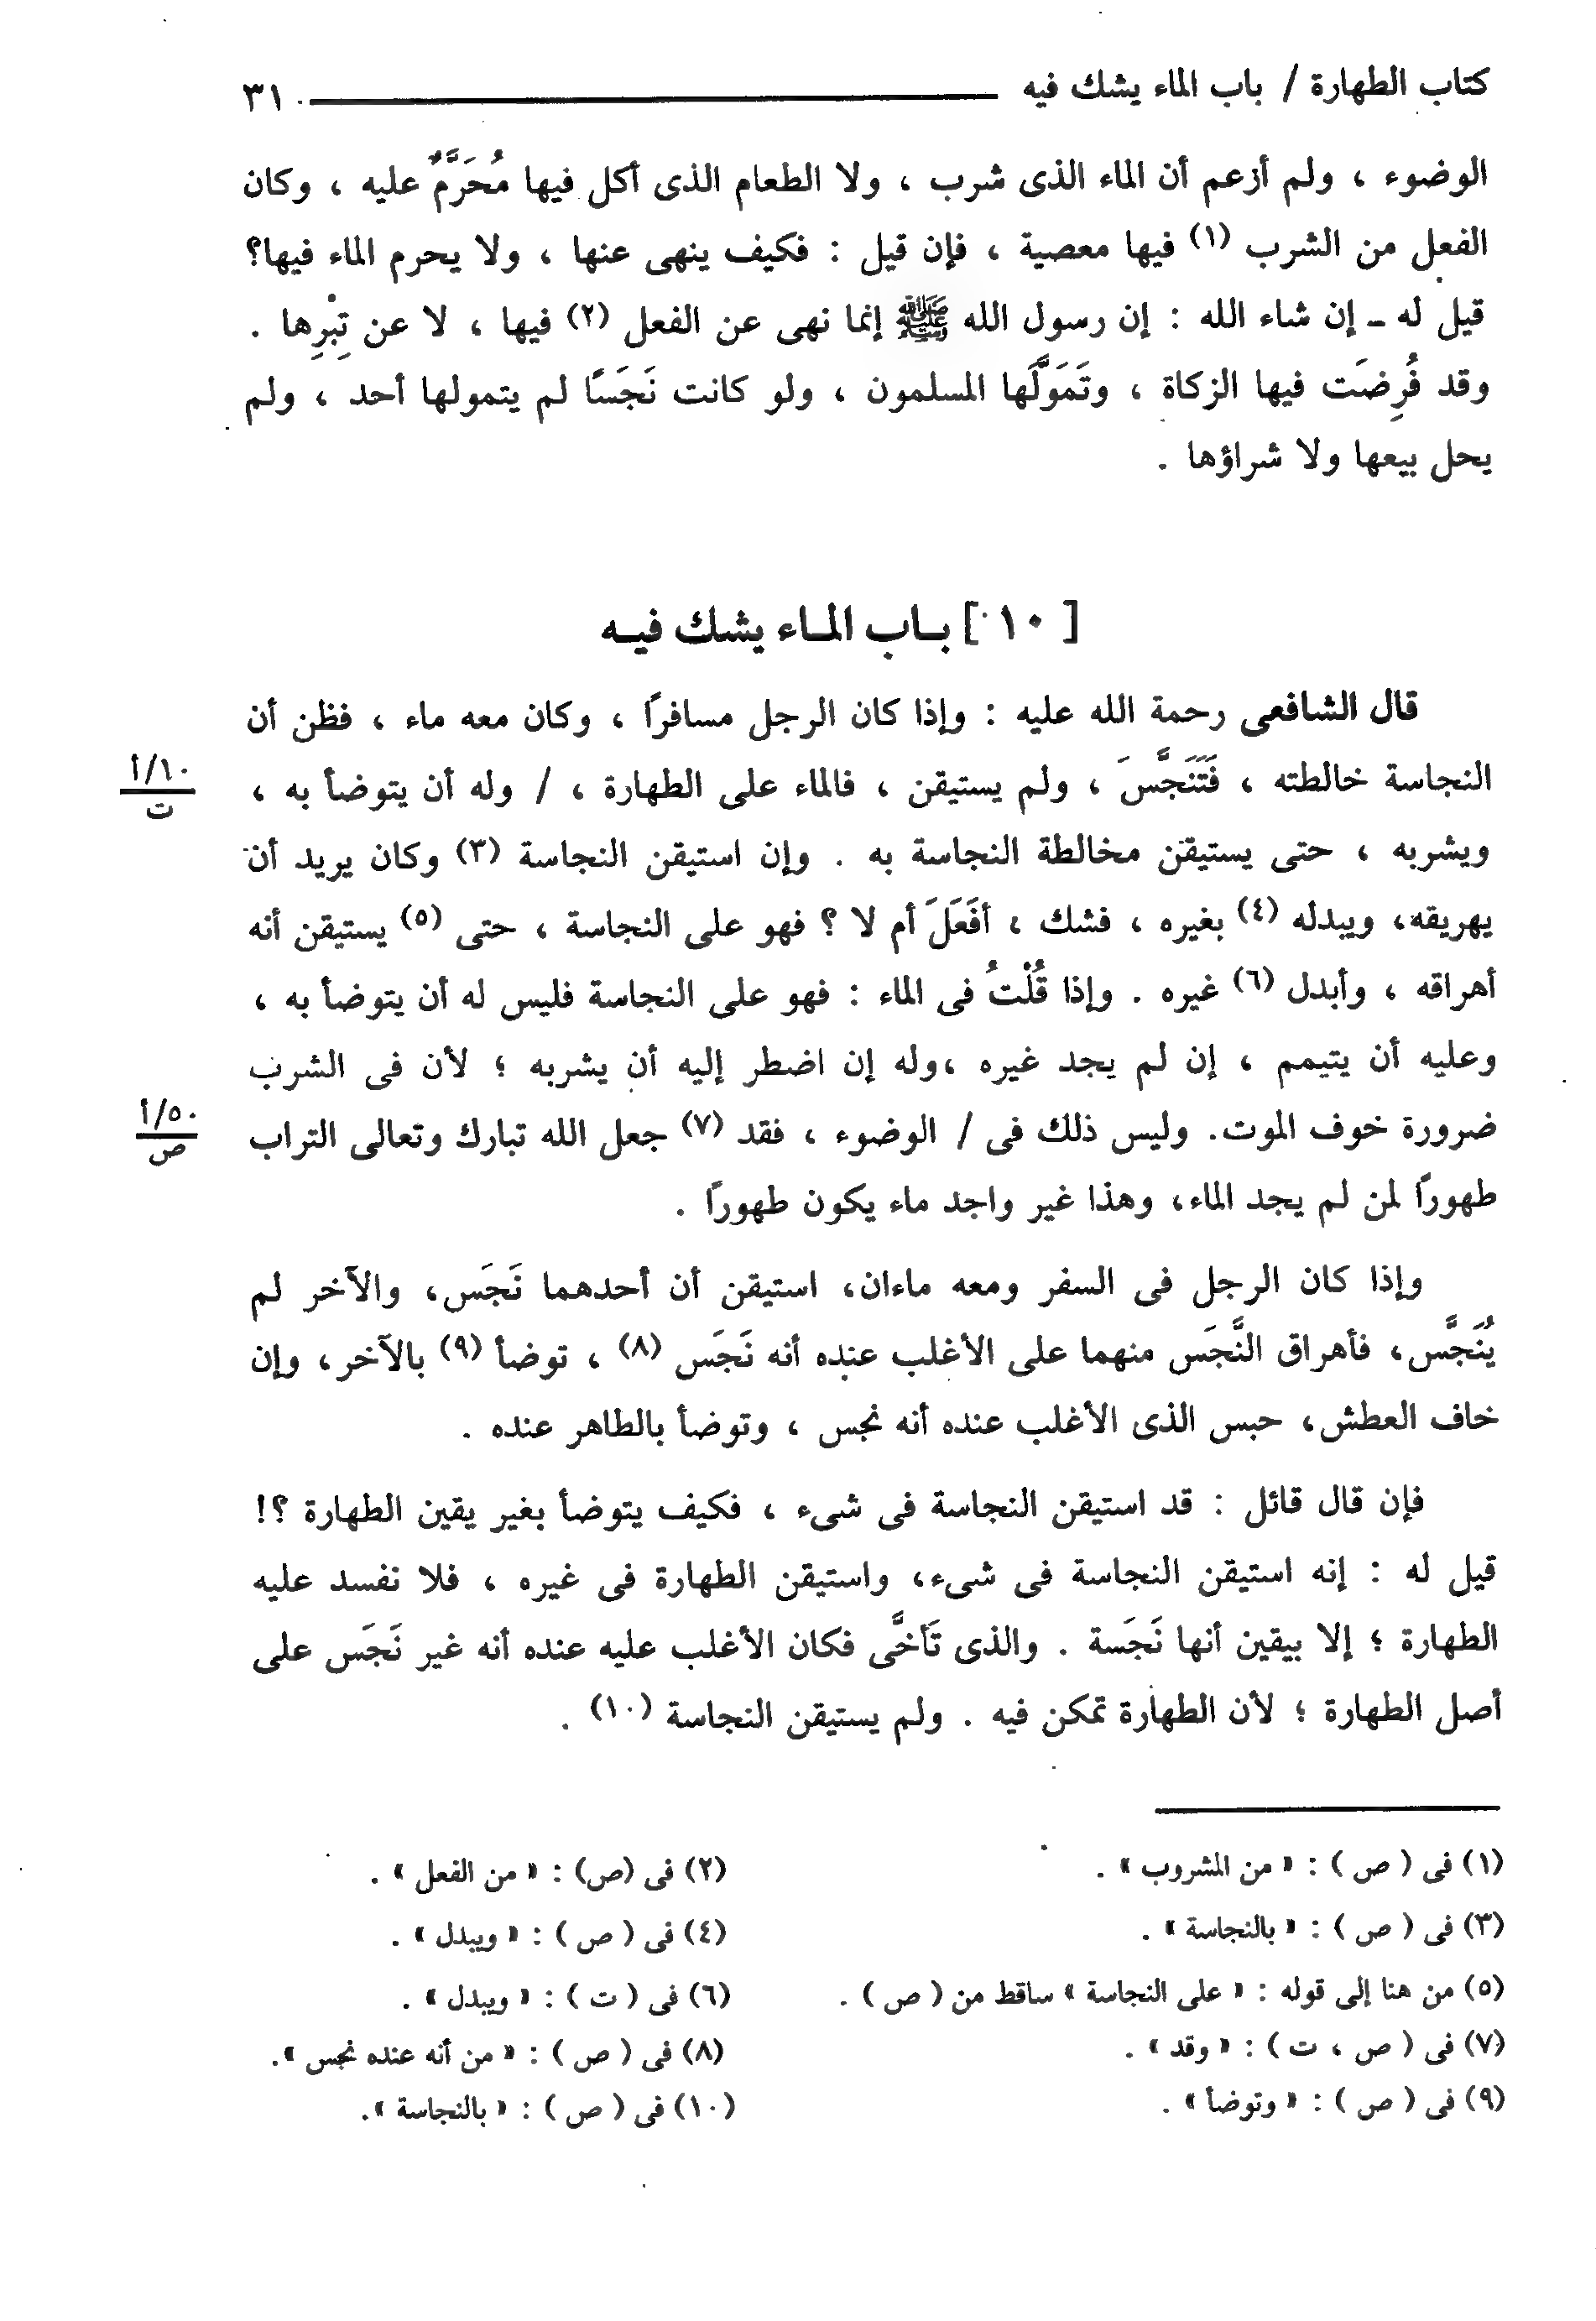 كتاب الطهارة / باب الماء يشك فيه ٣١
الوضوء ، ولم أزعم أن الماء الذى شرب ، ولا الطعام الذى أكل فيها مُحَرَّمٌ عليه ، وكان
الفعل من الشرب (١) فيها معصية ، فإن قيل : فكيف ينهى عنها ، ولا يحرم الماء فيها؟
قيل له ـ إن شاء الله : إن رسول الله ﷺ إنما نهى عن الفعل (٢) فيها ، لا عن تِبْرِها .
وقد فُرِضَت فيها الزكاة ، وتَمَوَّلَها المسلمون ، ولو كانت نَجَسًا لم يتمولها أحد ، ولم
يحل بيعها ولا شراؤها .
[ ١٠ ] بـاب المـاء يشك فيـه
قال الشافعى رحمة الله عليه : وإذا كان الرجل مسافرًا ، وكان معه ماء ، فظن أن
النجاسة خالطته ، فَتَنَجَّسَ ، ولم يستيقن ، فالماء على الطهارة ، / وله أن يتوضأ به ،
١٠/أ
ت
ويشربه ، حتى يستيقن مخالطة النجاسة به . وإن استيقن النجاسة (٣) وكان يريد أن
يهريقه، ويبدله (٤) بغيره ، فشك ، أفَعَلَ أم لا ؟ فهو على النجاسة ، حتى (٥) يستيقن أنه
أهراقه ، وأبدل (٦) غيره . وإذا قُلْتُ فى الماء : فهو على النجاسة فليس له أن يتوضأ به ،
وعليه أن يتيمم ، إن لم يجد غيره ،وله إن اضطر إليه أن يشربه ؛ لأن فى الشرب
ضرورة خوف الموت. وليس ذلك فى / الوضوء ، فقد (٧) جعل الله تبارك وتعالى التراب
٥٠/أ
ص
طهورًا لمن لم يجد الماء، وهذا غير واجد ماء يكون طهورًا .
وإذا كان الرجل فى السفر ومعه ماءان، استيقن أن أحدهما نَجَس، والآخر لم
يُنَجَّس، فأهراق النَّجَس منهما على الأغلب عنده أنه نَجَس (٨) ، توضأ (٩) بالآخر، وإن
خاف العطش، حبس الذى الأغلب عنده أنه نجس ، وتوضأ بالطاهر عنده .
فإن قال قائل : قد استيقن النجاسة فى شىء ، فكيف يتوضأ بغير يقين الطهارة ؟!
قيل له : إنه استيقن النجاسة فى شىء، واستيقن الطهارة فى غيره ، فلا نفسد عليه
الطهارة ؛ إلا بيقين أنها نَجَسة . والذى تَأخَّى فكان الأغلب عليه عنده أنه غير نَجَس على
أصل الطهارة ؛ لأن الطهارة تمكن فيه . ولم يستيقن النجاسة (١٠) .
(١) فى ( ص ) : « من المشروب » .
(٢) فى (ص) : « من الفعل » .
(٣) فى ( ص ) : « بالنجاسة » .
(٤) فى ( ص ) : « ويبدل » .
(٥) من هنا إلى قوله : « على النجاسة » ساقط من ( ص ) .
(٦) فى ( ت ) : « ويبدل » .
(٧) فى ( ص ، ت ) : « وقد » .
(٨) فى ( ص ) : « من أنه عنده نجس ».
(٩) فى ( ص ) : « وتوضأ » .
(١٠) فى ( ص ) : « بالنجاسة ».